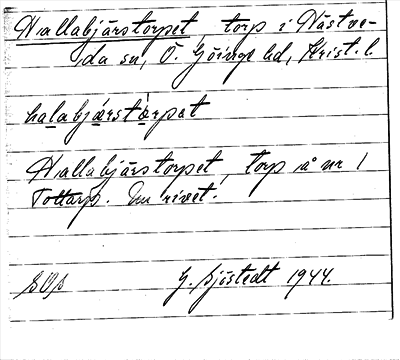 Hallabjärstorpet, torp i Nästve-
da sn, Ö. Göinge hd, Krist. l.
halabjærstȧrpat
Hallabjärstorpet, torp å nr 1
Tottarp. Nu rivet.
G. Sjöstedt 1944.